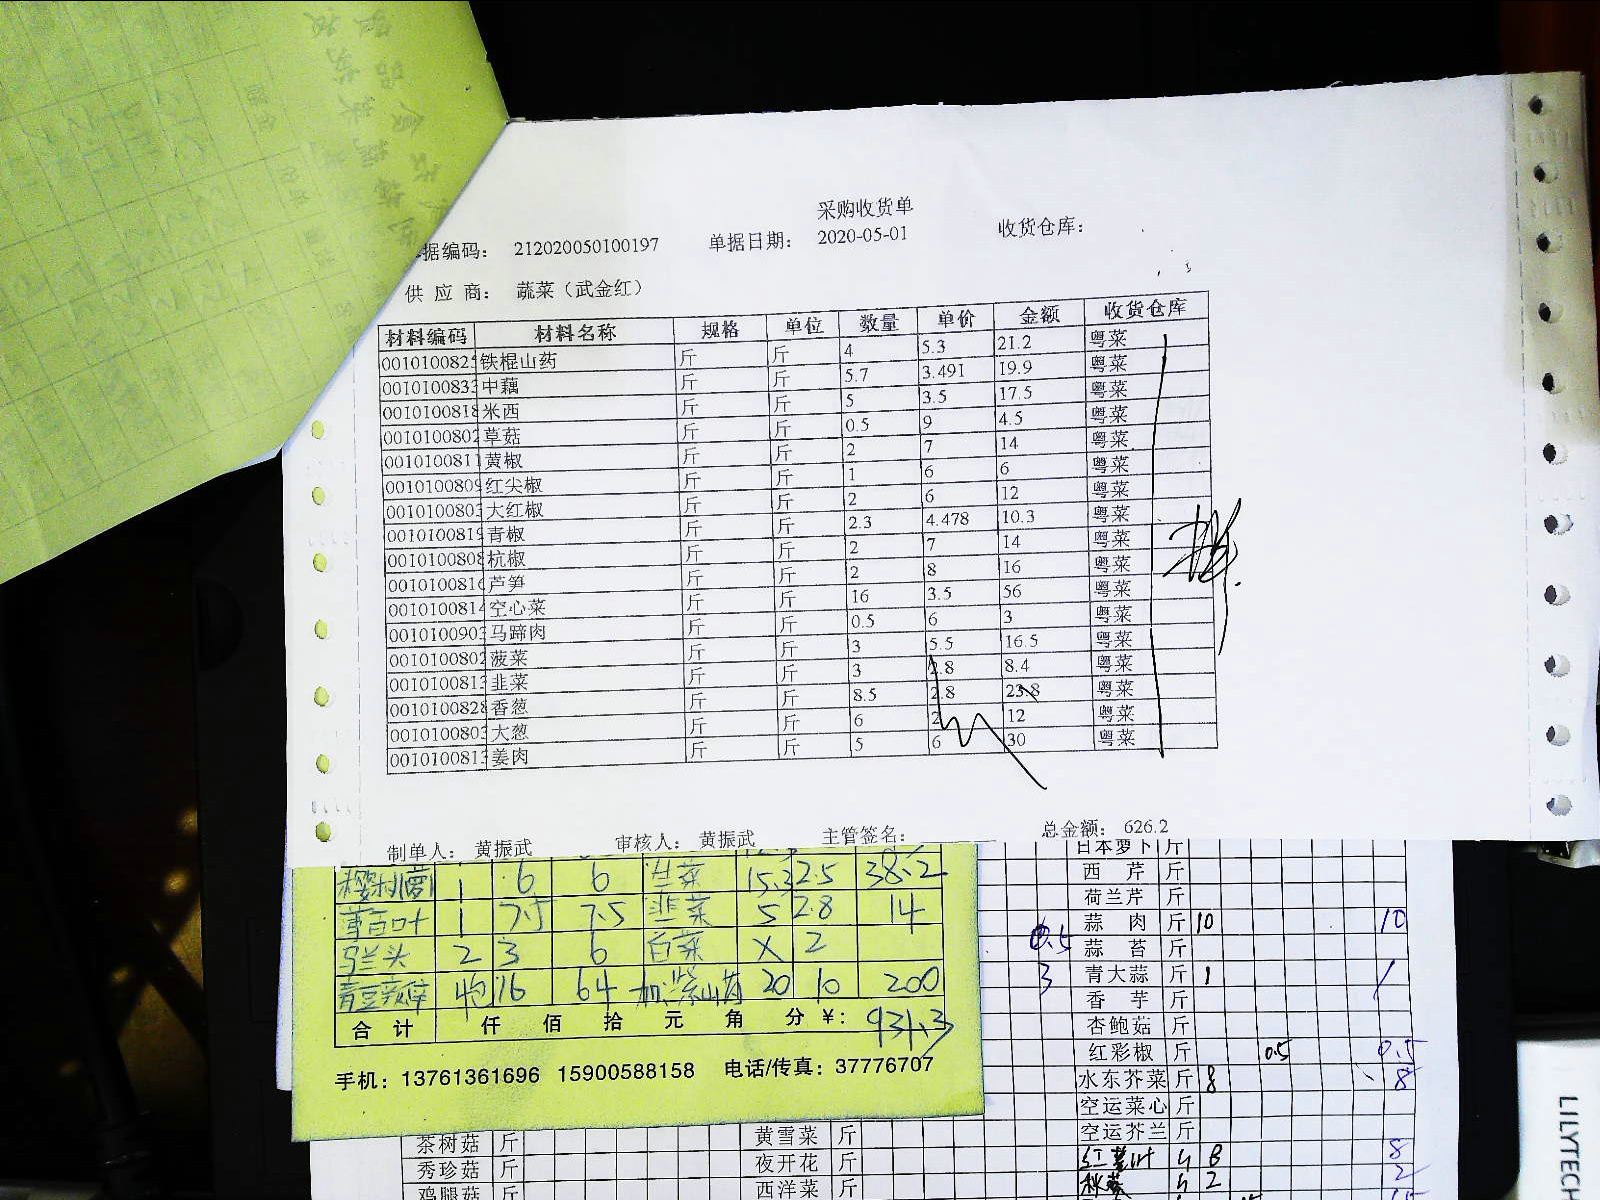 采购收货单
据编码： 212020050100197 单据日期： 2020-05-01 收货仓库：
供 应 商： 蔬菜（武金红）
材料编码 材料名称 规格 单位 数量 单价 金额 收货仓库
001010082 铁棍山药 斤 斤 4 5.3 21.2 粤菜
001010083 中藕 斤 斤 5.7 3.491 19.9 粤菜
001010081 米西 斤 斤 5 3.5 17.5 粤菜
001010080 草菇 斤 斤 0.5 9 4.5 粤菜
001010081 黄椒 斤 斤 2 7 14 粤菜
001010080 红尖椒 斤 斤 1 6 6 粤菜
001010080 大红椒 斤 斤 2 6 12 粤菜
001010081 青椒 斤 斤 2.3 4.478 10.3 粤菜
001010080 杭椒 斤 斤 2 7 14 粤菜
001010081 芦笋 斤 斤 2 8 16 粤菜
001010081 空心菜 斤 斤 16 3.5 56 粤菜
001010090 马蹄肉 斤 斤 0.5 6 3 粤菜
001010080 菠菜 斤 斤 3 5.5 16.5 粤菜
001010081 韭菜 斤 斤 3 2.8 8.4 粤菜
001010082 香葱 斤 斤 8.5 2.8 23.8 粤菜
001010080 大葱 斤 斤 6 2 12 粤菜
001010081 姜肉 斤 斤 5 6 30 粤菜
制单人： 黄振武 审核人： 黄振武 主管签名： 总金额： 626.2
1 6 6 生菜 15.3 2.5 38.2
薄百叶 1 7.5 7.5 韭菜 5 2.8 14
马兰头 2 3 6 白菜 X 2
青豆 16 64 加：紫山药 20 10 200
合 计 仟 佰 拾 元 角 分 ￥： 931.3
手机：13761361696 15900588158 电话/传真：37776707
日本萝卜 斤
西 芹 斤
荷兰芹 斤
蒜 肉 斤 10 10
0.5 蒜 苔 斤
3 青大蒜 斤 1 1
香 芋 斤
杏鲍菇 斤
红彩椒 斤 0.5 0.5
水东芥菜 斤 8 8
空运菜心 斤
茶树菇 斤 黄雪菜 斤 空运芥兰 斤
秀珍菇 斤 夜开花 斤 8 8
鸡腿菇 斤 西洋菜 斤 秋葵 2 2
LILYTECH